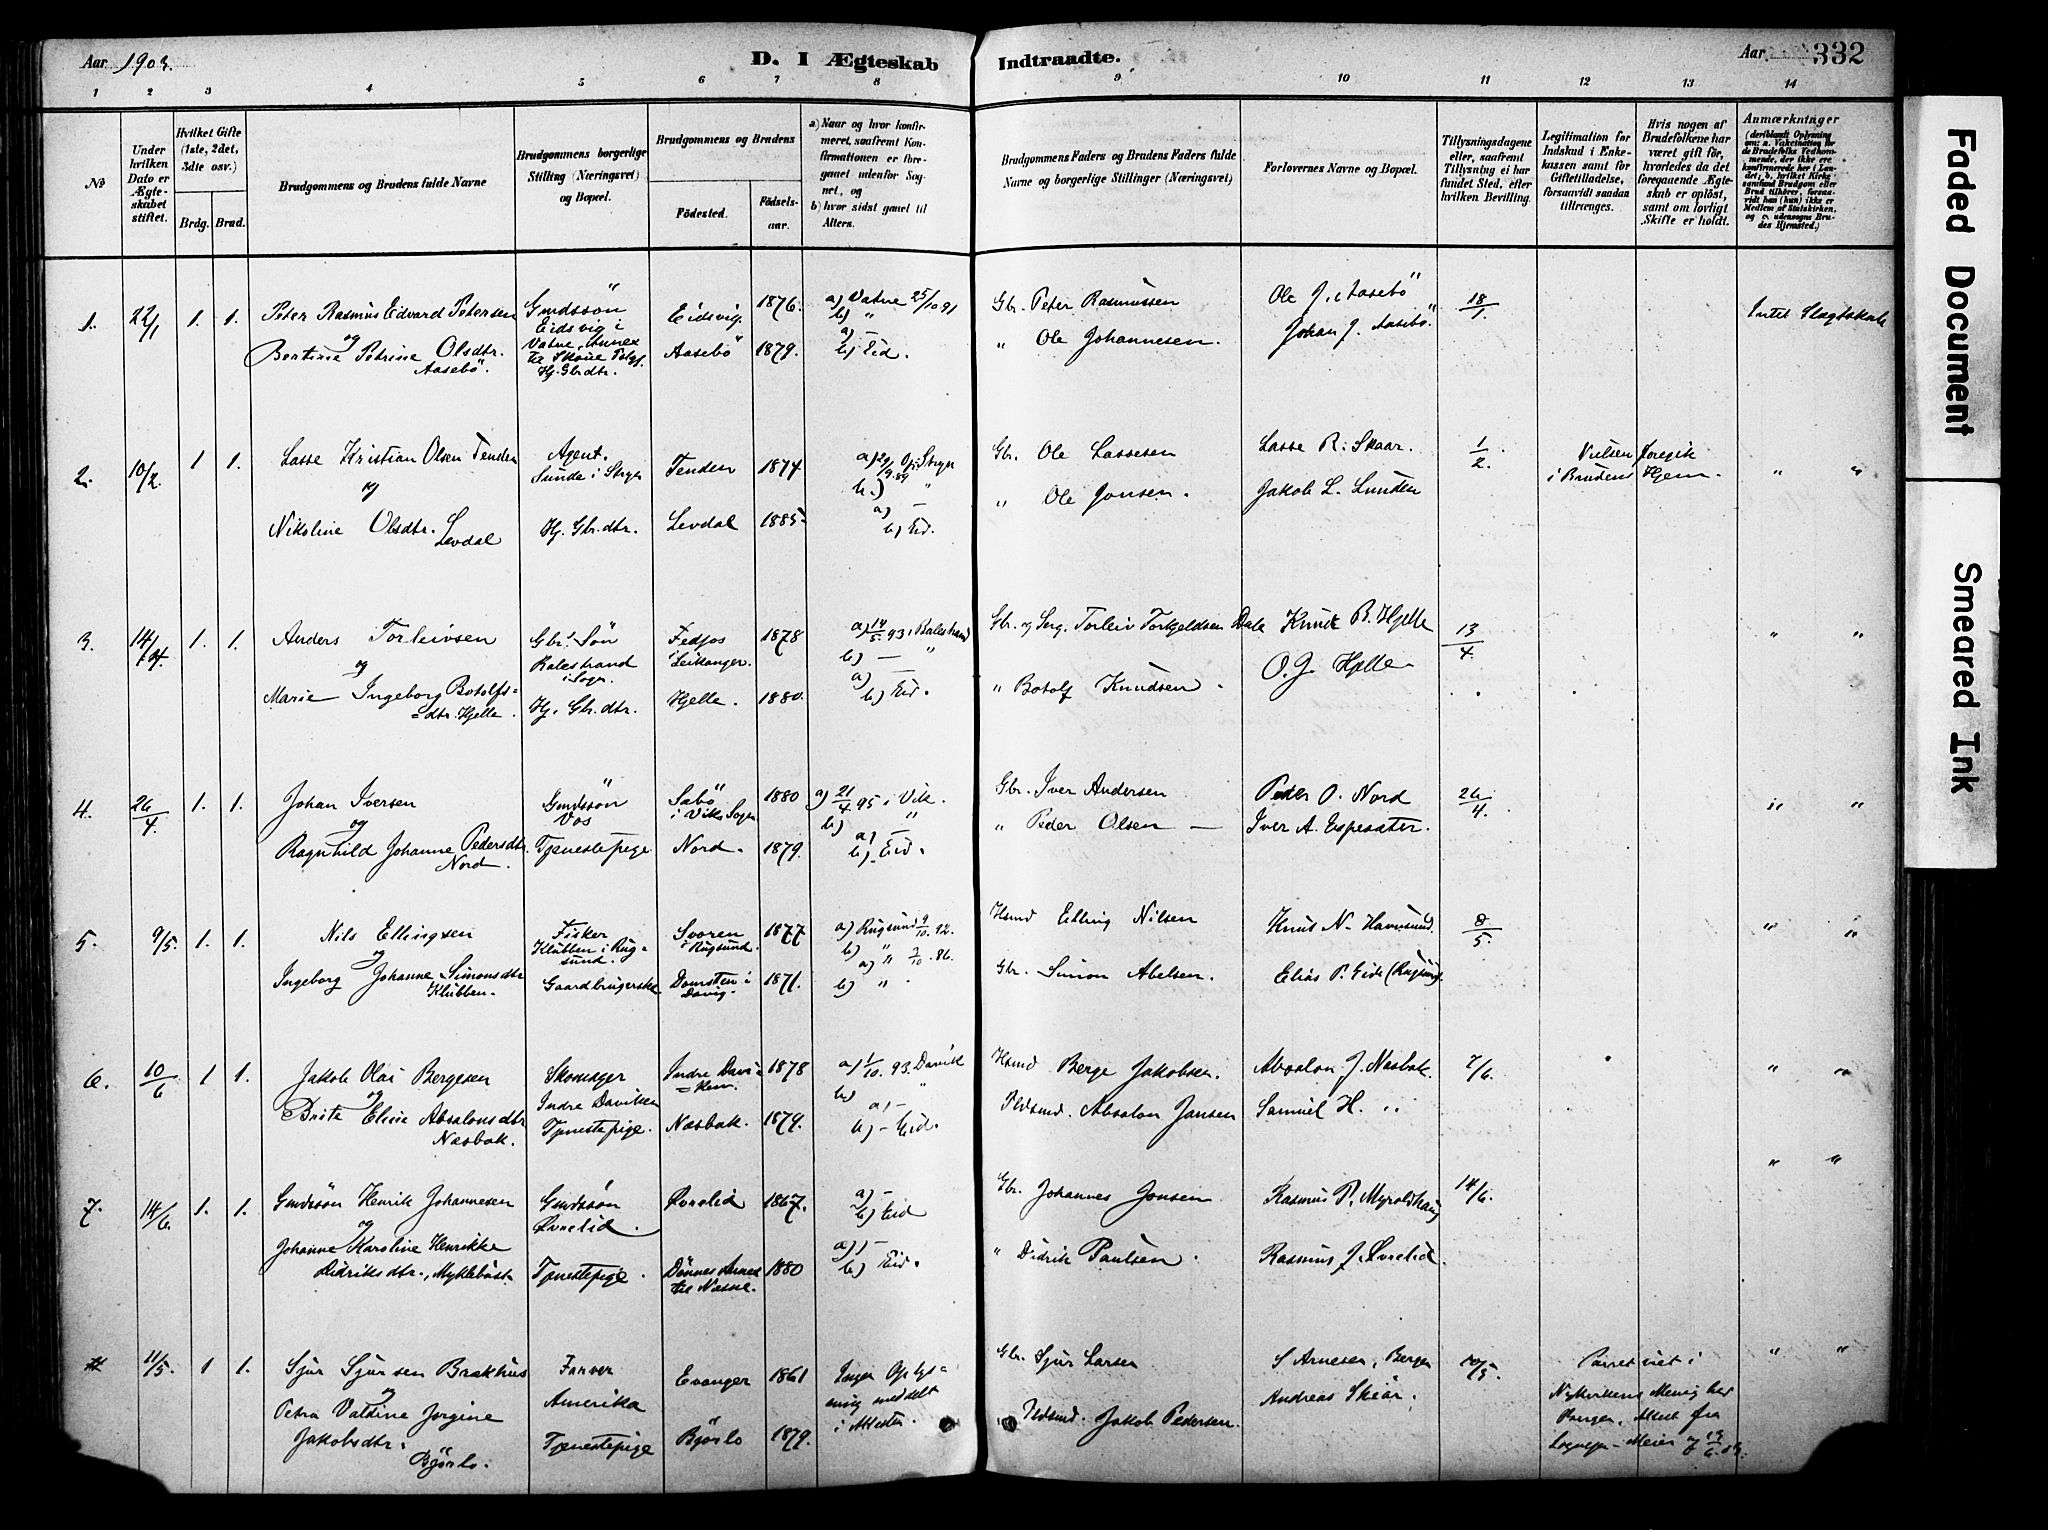 Aar 1903.
D. I Ægteskab Indtraadte.
Aar 332
1 2 3 4 5 6 7 8 9 10 11 12 13 14
No
Under hvilken Dato er Ægteskabet stiftet.
Hvilket Gifte (1ste, 2det, 3die osv.)
Brdg. Brud.
Brudgommens og Brudens fulde Navne
Brudgommens borgerlige Stilling (Næringsvei) og Bopæl.
Brudgommens og Brudens
Fødested. Fødselsaar.
a) Naar og hvor konfirmeret, saafremt Konfirmationen er foregaaet udenfor Sognet, og
b) hvor sidst gaaet til Alters.
Brudgommens Faders og Brudens Faders fulde Navne og borgerlige Stillinger (Næringsvei)
Forlovernes Navne og Bopæl.
Tillysningsdagene eller, saafremt Tillysning ei har fundet Sted, efter hvilken Bevilling.
Legitimation for Indskud i Enkekassen samt for Giftetilladelse, forsaavidt saadan tiltrænges.
Hvis nogen af Brudefolkene har været gift før, hvorledes da det foregaaende Ægteskab er opløst, samt om lovligt Skifte er holdt.
Anmærkninger (deriblandt Oplysning om: a. Vakcination for de Brudefolks Vedkommende, der ikke ere konfirmerede her i Landet; b. hvilket Kirkesamfund Brudgom eller Brud tilhører, forsaavidt han (hun) ikke er Medlem af Statskirken, og c. udensogns Brudes Hjemsted.)
1. 22/1 1. 1. Peter Rasmus Edvard Petersen Gmdssön Eidsvig 1876. a) Vatne 25/10 91 Gbr. Peter Rasmussen Ole J. Aasebö 18/1 Intet Slægtskab
og Eidsvig i b) "
Bertine Petrine Olsdtr. Vatne, Annex Aasebö 1879. a) — b) Eid. " Ole Johannesen. Johan J. Aasebö.
Aasebö. Hj. Gbrdtr.
2. 10/2 1 1. Lasse Kristian Olsen Tenden Agent. Tenden 1874 Gbr. Ole Lassesen Lasse R. Skaar. 1/2
og Sunde i Stryn b.) " " Ole Jonsen. Jakob L. Lunden i Brudens Hjem. " "
Nikoline Olsdtr. Hj. Gbr.dtr. Levdal 1885 a) — b) Eid.
Levdal
3. 14/4 1. 1. Anders Torleivsen Gbr. Sön Fedjos 1878 a) 14/5 93 i Balestrand Gbr. og Serg. Torleiv Torkjeldsen Dale Knut B. Hjelle 13/4 " "
og Balestrand i Sogn i Leikanger. b) — "
Marie Ingeborg Botolfs= Hj. Gbr.dtr. Hjelle. 1880. a) — b) Eid. " Botolf Knudsen. O. J. Hjelle
=dtr. Hjelle.
4. 26/4 1. 1. Johan Iversen Gmdssön Sæbö 1880 a) 21/4 95 i Vik. Gbr. Iver Andersen Peder O. Nord 26/4 " "
og Vos i Vik Sogn b) "
Ragnhild Johanne Pedersdtr. Tjenestepige Nord. 1879. a) — b) Eid. " Peder Olsen — Iver A. Espesæter.
Nord
5. 9/5. 1. 1. Nils Ellingsen Fisker Svoren 1877 a) Rugsund 9/10. 92. Hsmd Elling Nilsen Knut N. Havnsund. 8/5 " "
og Klubben i Rugsund. i Rugsund. b) "
Ingeborg Johanne Simonsdtr Gaardbrugerske Domsten i 1871. a) " 7/10. 86. Gbr. Simon Abelsen. Elias P. Eide (Rugsund)
Klubben. Davig. b) "
6. 10/6 1 1. Jakob Olai Bergesen Skomager Indre Davi= 1878 a) 1/10. 93. Davik Hsmd Berge Jakobsen. Absalon J. Næsbak. 7/6. " "
og Indre Daviken =ken. b) "
Brite Eline Absalonsdtr Tjenestepige. Næsbak. 1879. a) — b) — Eid. Pldsmd. Absalon Jansen Samuel H. "
Næsbak.
7. 14/6 1. 1. Gmdssön Henrik Johannesen Gmdssön Øvrelid 1867. a) — b) Eid Gbr. Johannes Jonsen Rasmus P. Myroldhaug 14/6. " "
og Øvrelid.
Johanne Karoline Henrikke a) —
Didriksdtr., Myklebust Tjenestepige. Dönnes Annex til Næsne. 1880 b) Eid. " Didrik Paulsen. Rasmus J. Øvrelid.
11/5. 1 1. Sjur Sjursen Brækhus Farver Evanger 1861 Ingen Oplys= Gbr. Sjur Larsen S. Arnesen, Bergen 10/5 Parret viet i " "
og Amerika ning meddelt Andreas Skeiår. Nykirkens Menighed
Petra Valdine Jørgine i Attester. Bergen, Attest fra
Jakobsdtr. Tjenestepige Bjørlo 1879. Pldsmd. Jakob Pedersen.
Bjørlo.
Faded Document
Smeared Ink